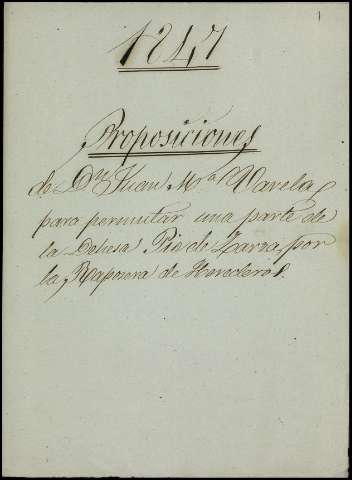 1
1847
Proposiciones
de Dn Juan Ma Varela
para permutar una parte de
la Dehesa Pie de Zarza, por
la Raposera de Herederos.